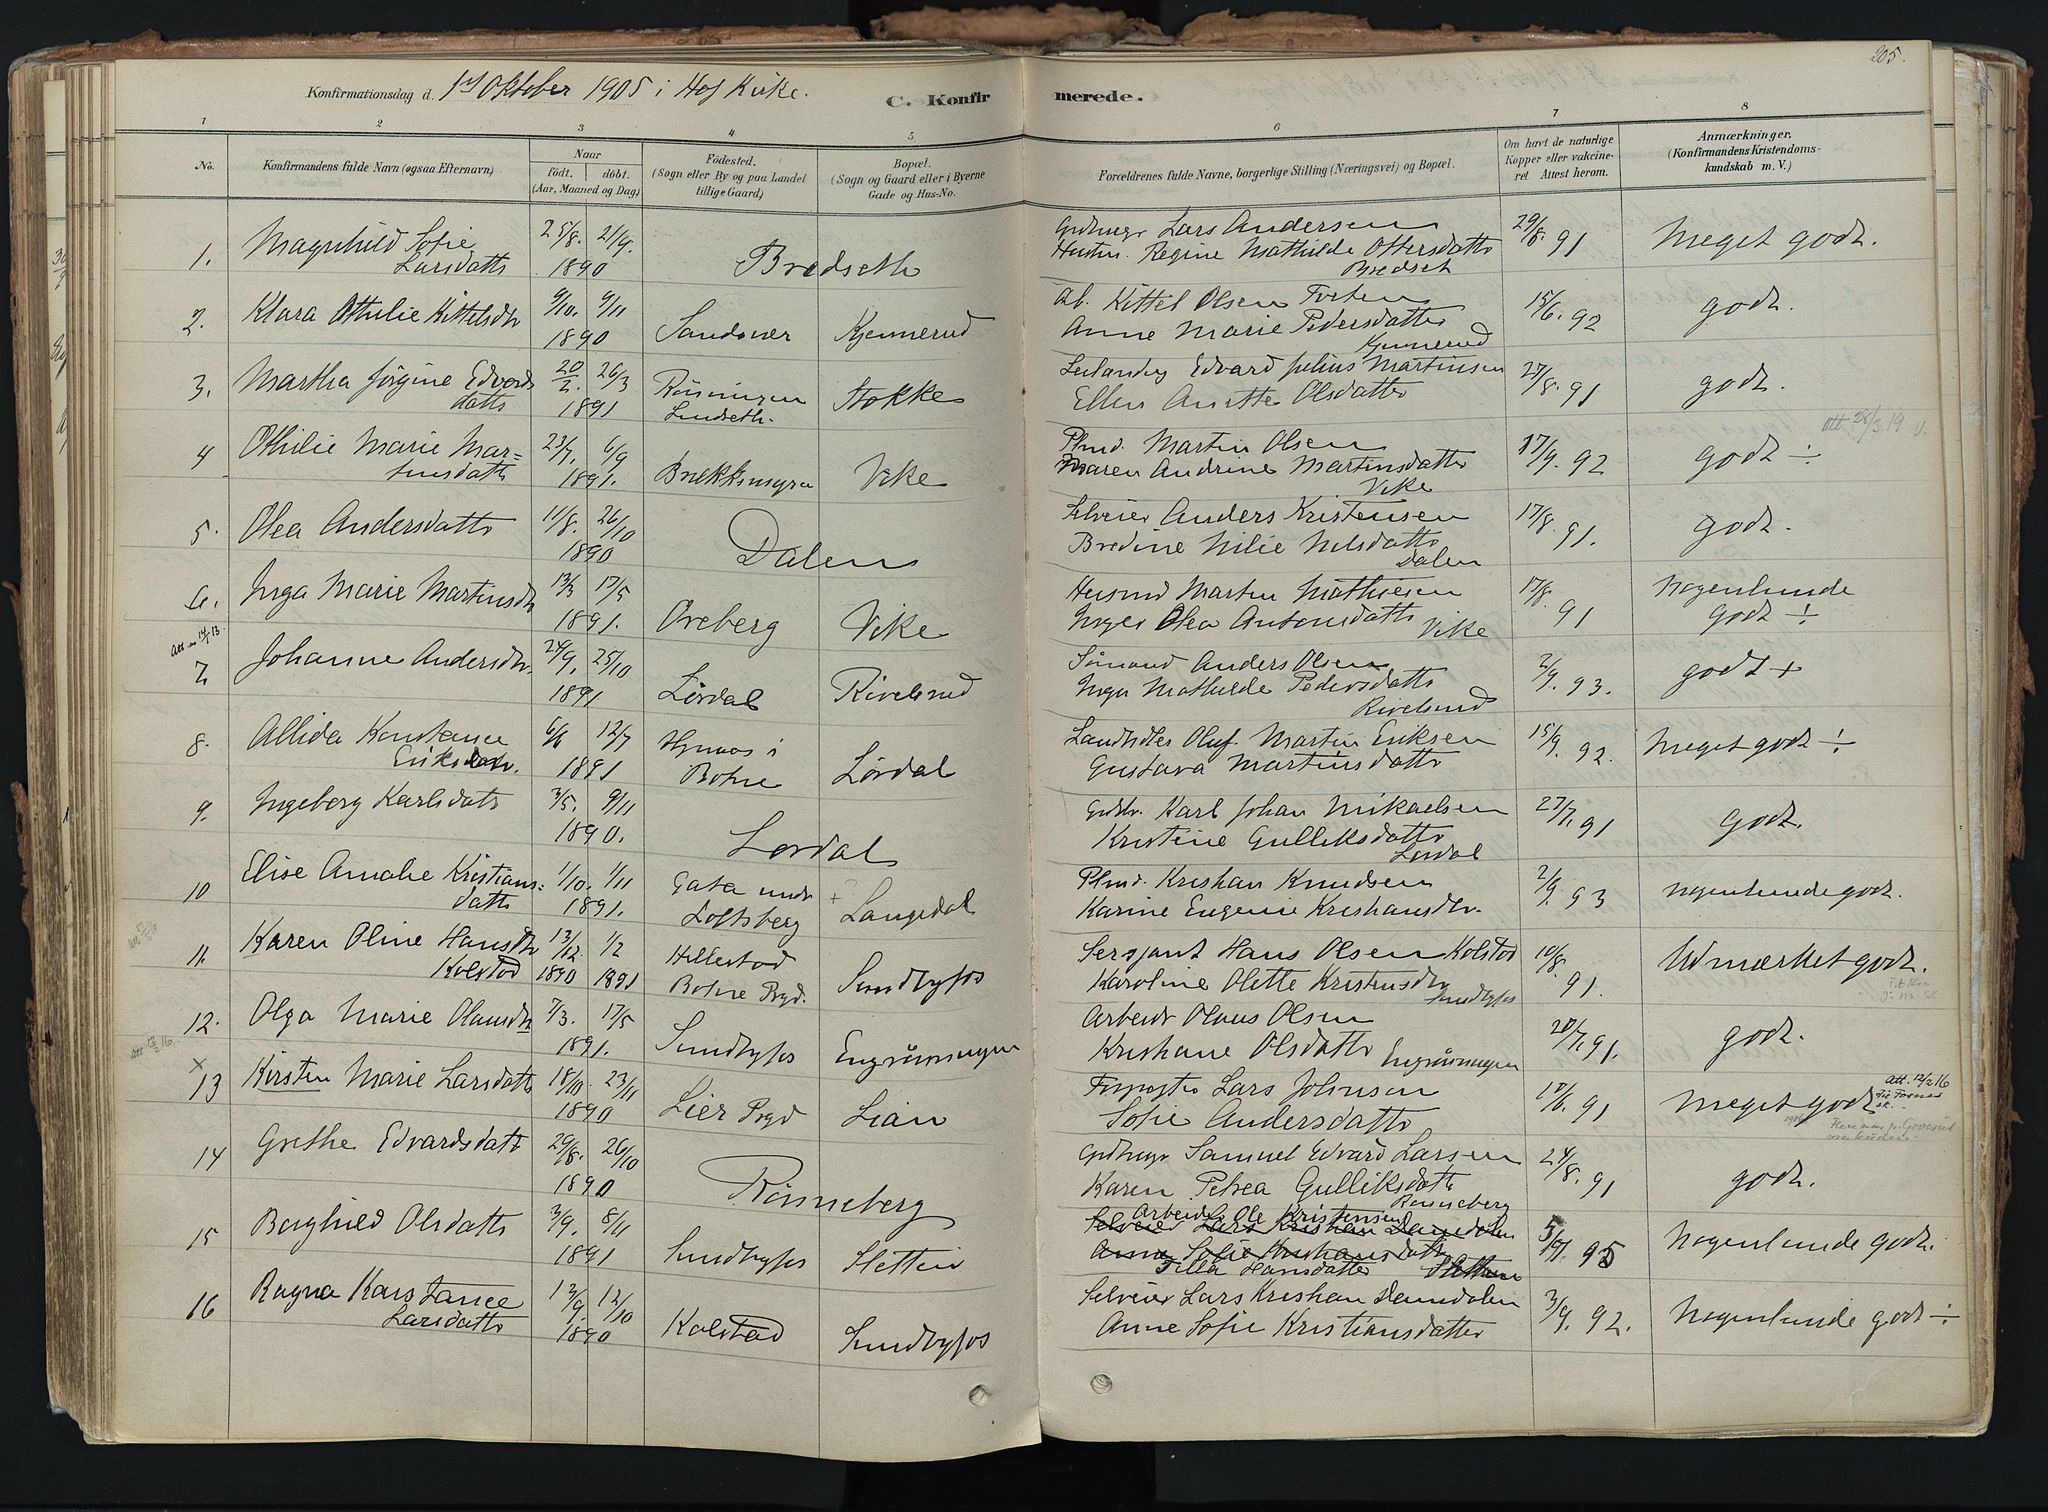 205.
Konfirmationsdag d. 1ste Oktober 1905 i Hof Kirke.
C. Konfirmerede.
1 2 3 4 5 6 7 8
No.
Konfirmandens fulde Navn (ogsaa Efternavn)
Naar
födt. döbt.
(Aar, Maaned og Dag)
Födested.
(Sogn eller By og paa Landet
tillige Gaard)
Bopæl.
(Sogn og Gaard eller i Byerne
Gade og Hus-No.
Forældrenes fulde Navne, borgerlige Stilling (Næringsvei) og Bopæl.
Om havt de naturlige
Kopper eller vakcine-
ret Attest herom.
Anmærkninger.
(Konfirmandens Kristendoms-
kundskab m. V.)
1. Magnhild Sofie Larsdattr 25/8. 21/9. 1890 Bredseth
Lars Andersen
Hustru Regine Mathilde Ottersdattr Bredset
29/8. 91 Meget godt.
2. Klara Othilie Kittelsdtr 9/10. 9/11 1890 Sandsvær Kjennerud
Arb. Kittel Olsen Forten
Anne Marie Pedersdatter Kjennerud
15/6. 92 godt.
3. Martha Jörgine Edvardsdattr 20/2. 26/3 1891 Rönningen Lindseth. Stokke
Edvard Julius Martinsen
Ellen Anette Olsdatter
27/8. 91 godt.
4 Othilie Marie Martinsdattr 23/7. 6/9 1891. Brækkemyra Vike
Plmd. Martin Olsen
Maren Andrine Martinsdatter Vike
17/9. 92 godt ÷
Att 28/3 19
5. Olea Andersdattr 11/8. 26/10 1890 Dalen
Selveier Anders Kristensen
Bredine Nilsdattr Dalen
17/8. 91. godt.
6. Inga Marie Martinsdtr 13/3 17/5 1891. Oreberg Vike
Husmd Martin Mathisen
Inger Olea Antonsdattr Vike
17/8. 91 Nogenlunde godt ÷
7. Johanne Andersdtr. 24/9. 25/10 1891 Lördal Rivelsrud
Anders Olsen
Inga Mathilde Pedersdattr Rivelsrud
2/9. 93. godt +
8. Allida Konstance Eriksdatr. 6/6 12/7 1891 i Botne Lördal
Oluf Martin Eriksen
Gustava Martinsdattr
15/9. 92. Meget godt ÷
9. Ingeborg Karlsdattr 3/5. 9/11 1890. Lördal
Karl Johan Mikaelsen
Kristine Gulliksdattr Lördal
27/7. 91 godt.
10 Elise Amalie Kristiansdattr 1/10. 1/11 1891. Gata undr Loftsberg Langedal
Plmd. Kristian Knudsen
Karine Eugenie Kristiansdtr.
2/9. 93 nogenlunde godt.
11. Karen Oline Hansdtr Kolstad 13/12. 1/2 1890 1891 Hillestad Botne Prgd. Sundbyfos
Sersjant Hans Olsen Kolstad
Karoline Olette Kristensdtr Sundbyfos
10/8. 91. Udmærket godt.
12. Olga Marie Olausdtr 7/3. 17/5 1891. Sundbyfos Engrønningen
Arbeidr Olaus Olsen
Kristiane Olsdattr Engrønningen
20/7. 91. godt.
x
13 Kirsten Marie Larsdattr 18/10. 23/11 1890 Lier Prgd Lian
Forpagter Lars Johnsen
Sofie Andersdattr
17/6. 91 Meget godt
Att. 12/2 16
14 Grethe Edvardsdatt 29/8. 26/10 1890 Rönneberg
Samuel Edvard Larsen
Karen Petrea Gulliksdattr Rönneberg
24/8. 91 godt.
15 Borghild Olsdattr 3/9. 8/11 1891 Sundbyfos Sletten
Arbeidr Ole Kristensen
Selveier Lars Kristian Damdalen
Anne Sofie Kristiansdattr
Hansdatter Sletten
95 Nogenlunde godt.
16 Ragna Konstance Larsdattr 13/9. 12/10 1890 Kolstad Sundbyfos
Selveier Lars Kristian Damdalen
Anne Sofie Kristiansdatter
3/9. 92. Nogenlunde godt ÷